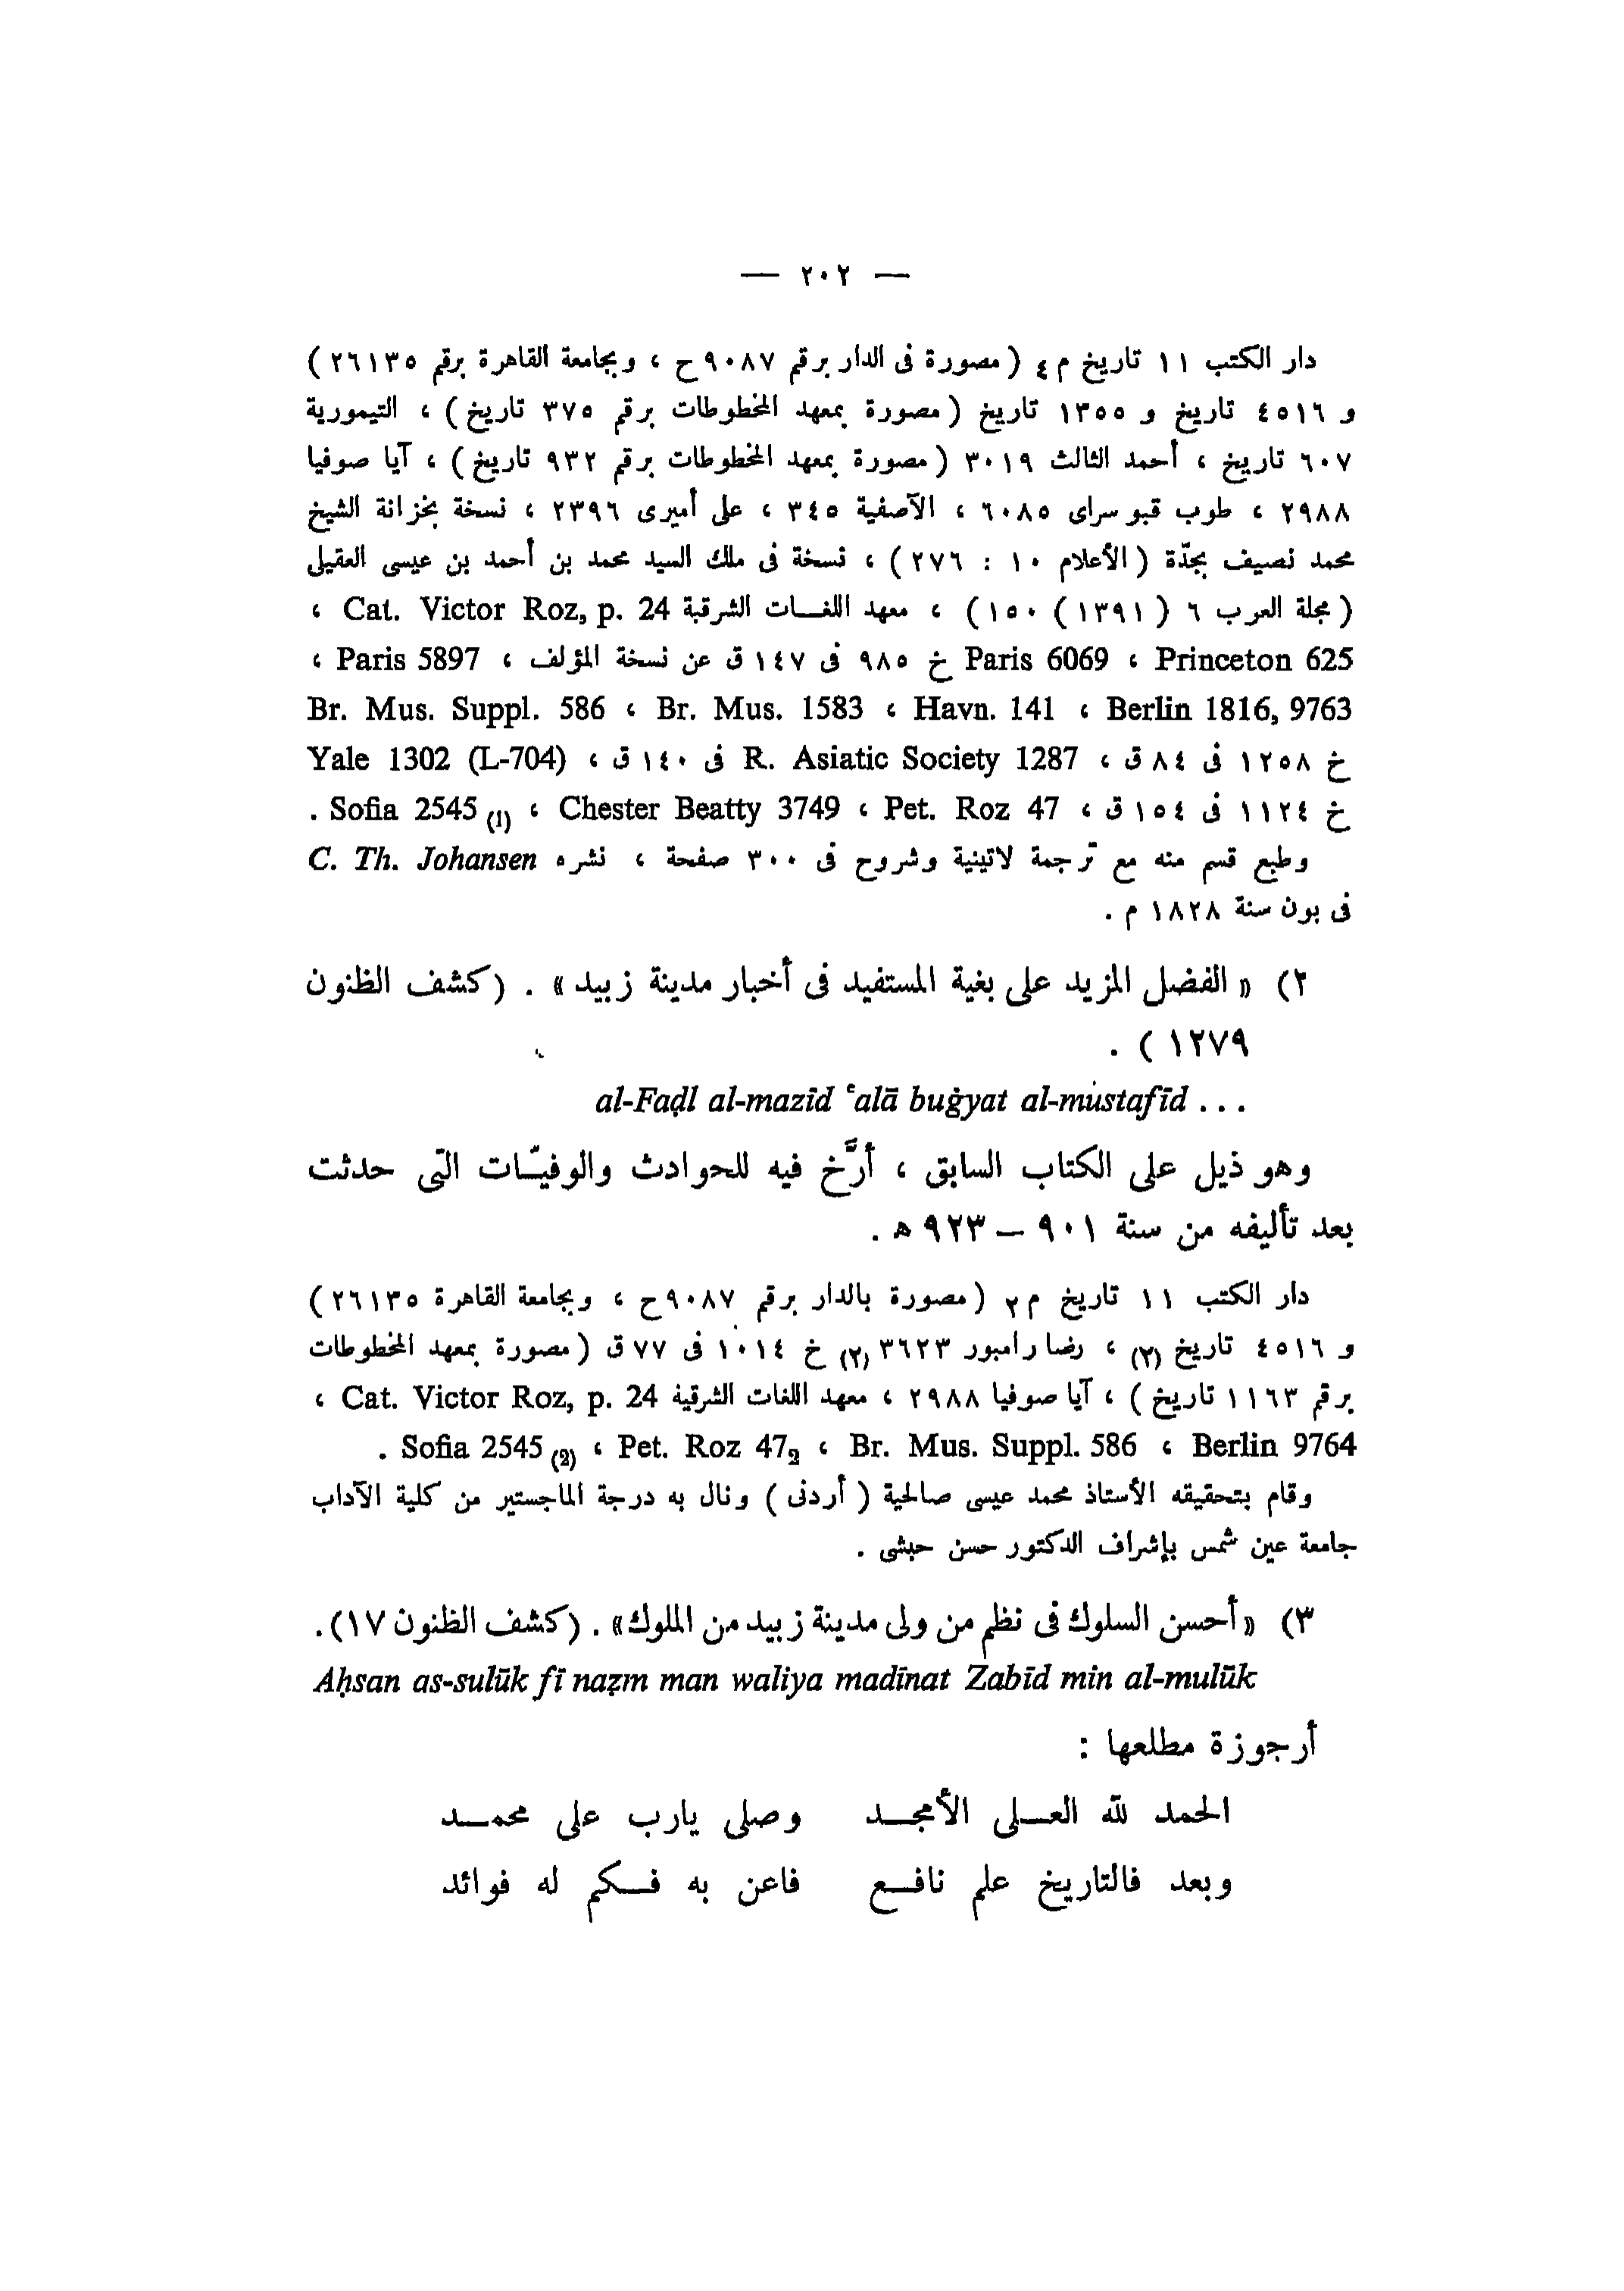 — ٢٠٢ —
دار الكتب ١١ تاريخ م ٤ ( مصورة فى الدار برقم ٩٠٨٧ ح ، وبجامعة القاهرة برقم ٢٦١٣٥ )
و ٤٥١٦ تاريخ و ١٣٥٥ تاريخ ( مصورة بمعهد المخطوطات برقم ٣٧٥ تاريخ ) ، التيمورية
٦٠٧ تاريخ ، أحمد الثالث ٣٠١٩ ( مصورة بمعهد المخطوطات برقم ٩٣٢ تاريخ ) ، آيا صوفيا
٢٩٨٨ ، طوب قبو سراى ٦٠٨٥ ، الآصفية ٣٤٥ ، على أميرى ٢٣٩٦ ، نسخة بخزانة الشيخ
محمد نصيف بجدّة ( الأعلام ١٠ : ٢٧٦ ) ، نسخة فى ملك السيد محمد بن أحمد بن عيسى العقيلى
( مجلة العرب ٦ ( ١٣٩١ ) ١٥٠ ) ، معهد اللغـات الشرقية Cat. Victor Roz, p. 24 ،
Princeton 625 ، Paris 6069 خ ٩٨٥ فى ١٤٧ ق عن نسخة المؤلف ، Paris 5897 ،
Br. Mus. Suppl. 586 ، Br. Mus. 1583 ، Havn. 141 ، Berlin 1816, 9763
خ ١٢٥٨ فى ٨٤ ق ، R. Asiatic Society 1287 فى ١٤٠ ق ، Yale 1302 (L-704)
خ ١١٢٤ فى ١٥٤ ق ، Pet. Roz 47 ، Chester Beatty 3749 ، Sofia 2545 (1) .
وطبع قسم منه مع ترجمة لاتينية وشروح فى ٣٠٠ صفحة ، نشره C. Th. Johansen
فى بون سنة ١٨٢٨ م .
٢) « الفضل المزيد على بغية المستفيد فى أخبار مدينة زبيد » . (كشف الظنون
١٢٧٩ ) .
al-Faḍl al-mazīd ʿalā buġyat al-mustafīd . . .
وهو ذيل على الكتاب السابق ، أرَّخ فيه للحوادث والوفيّـات التى حدثت
بعد تأليفه من سنة ٩٠١ – ٩٢٣ ه .
دار الكتب ١١ تاريخ م ٢ ( مصورة بالدار برقم ٩٠٨٧ ح ، وبجامعة القاهرة ٢٦١٣٥ )
و ٤٥١٦ تاريخ (٢) ، رضا رامبور ٣٦٢٣ (٢) خ ١٠١٤ فى ٧٧ ق ( مصورة بمعهد المخطوطات
برقم ١١٦٣ تاريخ ) ، آيا صوفيا ٢٩٨٨ ، معهد اللغات الشرقية Cat. Victor Roz, p. 24 ،
Berlin 9764 ، Br. Mus. Suppl. 586 ، Pet. Roz 47₂ ، Sofia 2545 (2) .
وقام بتحقيقه الأستاذ محمد عيسى صالحية ( أردنى ) ونال به درجة الماجستير من كلية الآداب
جامعة عين شمس بإشراف الدكتور حسن حبشى .
٣) « أحسن السلوك فى نظم من ولى مدينة زبيد من الملوك» . (كشف الظنون ١٧) .
Aḥsan as-sulūk fī naẓm man waliya madīnat Zabīd min al-mulūk
أرجوزة مطلعها :
الحمد لله العـلى الأمجـد وصلى يارب على محمـد
وبعد فالتاريخ علم نافـع فاعن به فـكم له فوائد